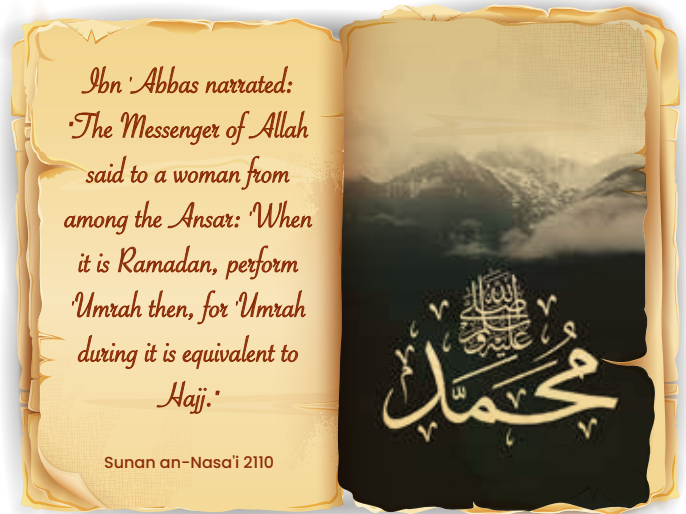 Ibn 'Abbas narrated:
"The Messenger of Allah
said to a woman from
among the Ansar: 'When
it is Ramadan, perform
'Umrah then, for 'Umrah
during it is equivalent to
Hajj."
Sunan an-Nasa'i 2110
صلى الله عليه وسلم
محمد